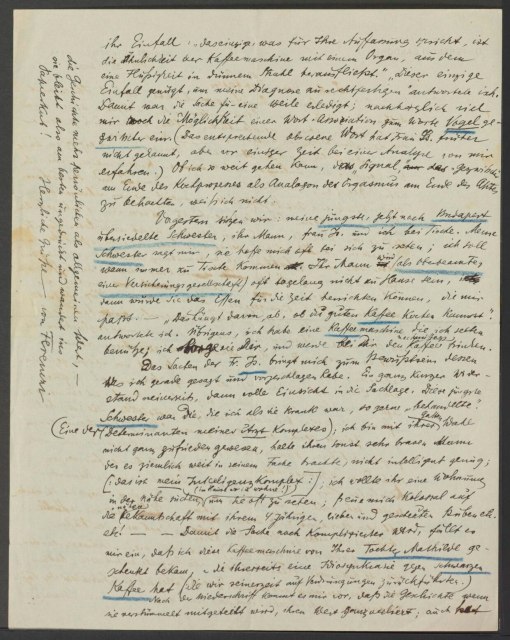 ihr Einfall: „das einzige, was für Ihre Auffassung spricht, ist
die Ähnlichkeit der Kaffeemaschine mit einem Organ, aus dem
eine Flüssigkeit in dünnem Strahl herausfliesst". „Dieser einzige
Einfall genügt, um meine Diagnose zu rechtfertigen" antwortete ich.
Damit war die Sache für eine Weile erledigt; nachträglich fiel
mir noch die Möglichkeit einer Wort-Association zum Worte Vogel
ein (das entsprechende obscoene Wort hat Frau G. früher
nicht gekannt, aber vor einiger Zeit bei einer Analyse von mir
erfahren.) Ob ich so weit gehen kann, das Signal
am Ende des Kochprozesses als Analogon des Orgasmus am Ende des
zu betrachten, weiss ich nicht.
Vorgestern sitzen wir: meine jüngste, jetzt nach Budapest
übersiedelte Schwester, ihr Mann, Frau G. und ich bei Tische. Meine
Schwester sagt mir, sie hoffe mich oft bei sich zu sehen; ich soll
wann immer zu Tische kommen. Ihr Mann wird (als Oberbeamter
einer Versicherungsgesellschaft) oft tagelang nicht zu Hause sein,
dann würde sie das Essen für die Zeit herrichten können, die mir
passt. – „Das hängt davon ab, ob du guten Kaffee kochen kannst"
antwortete ich. Übrigens, ich habe eine Kaffeemaschine die ich selten
benütze; ich borge sie dir, und werde bei dir den Kaffee trinken.
Das Lachen der Fr. G. bringt mich zum Bewusstsein dessen
was ich gerade gesagt und vorgeschlagen habe. Ein ganz kurzer Wider-
stand meinerseits, dann volle Einsicht in die Sachlage. Diese jüngste
Schwester war die, die ich als sie krank war, so gerne „behandelte"
(Eine der Determinanten meines Arzt-Komplexes); ich bin mit ihrer Gatten Wahl
nicht ganz zufrieden gewesen, halte ihren sonst sehr braven Mann
der es ziemlich weit in seinem Fache brachte, nicht intelligent genug;
(: das ist mein Intelligenzkomplex :); ich wollte ihr eine Wohnung
in der Nähe suchen, um sie oft zu sehen; freute mich kolossal auf
die nähere Bekanntschaft mit ihrem 4 jährigen, lieben und gescheiten Bübchen
etc! — — Damit die Sache noch komplizierter wird, fällt es
mir ein, dass ich diese Kaffeemaschine von Ihrer Tochter Mathilde ge-
schenkt bekam, – die ihrerseits eine Idiosynkrasie gegen schwarzen
Kaffee hat (die wir seinerzeit auf Verdrängungen zurückführten.)
Nach der Niederschrift kommt es mir vor, dass die Geschichte wenn
sie verstümmelt mitgeteilt wird, ihren Wert ganz verliert; auch hat
die Geschichte mehr persönlichen als allgemeinen Wert, –
sie bleibt also am besten ungedruckt und wandert ins
Herzliche Grüsse von Ferenczi